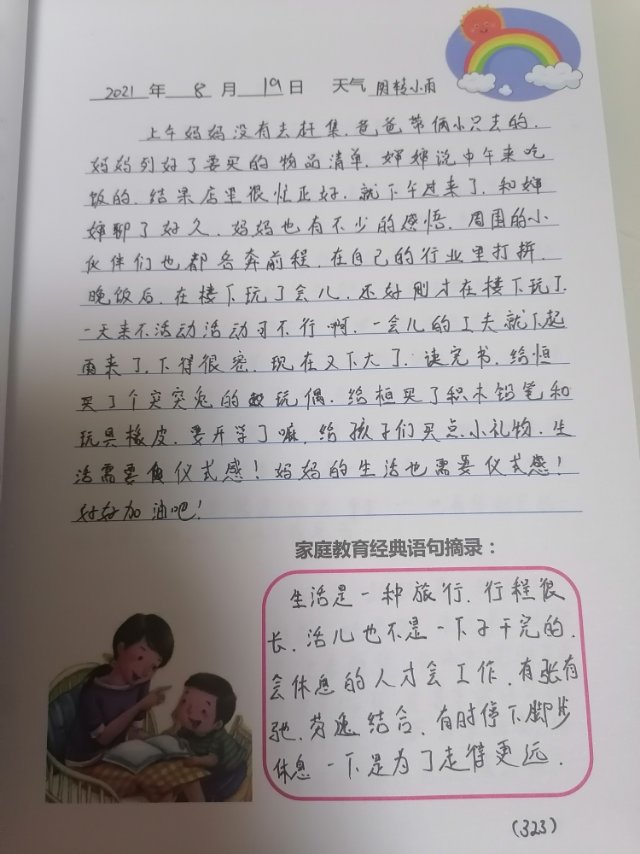 2021 年 8 月 19 日 天气 阴转小雨
上午妈妈没有去赶集.爸爸带俩小只去的.
妈妈列好了要买的物品清单.婶婶说中午来吃
饭的.结果店里很忙正好.就下午过来了.和婶
婶聊了好久.妈妈也有不少的感悟.周围的小
伙伴们也都各奔前程.在自己的行业里打拼.
晚饭后.在楼下玩了会儿.还好刚才在楼下玩了.
一天来不活动活动可不行啊.一会儿的工夫就下起
雨来了.下得很密.现在又下大了.读完书.给恒
买了个突突兔的玩偶.给桓买了积木铅笔和
玩具橡皮.要开学了嘛.给孩子们买点小礼物.生
活需要仪式感!妈妈的生活也需要仪式感!
好好加油吧!
家庭教育经典语句摘录:
生活是一种旅行.行程很
长.活儿也不是一下子干完的.
会休息的人才会工作.有张有
弛.劳逸结合.有时停下脚步
休息一下是为了走得更远.
(323)